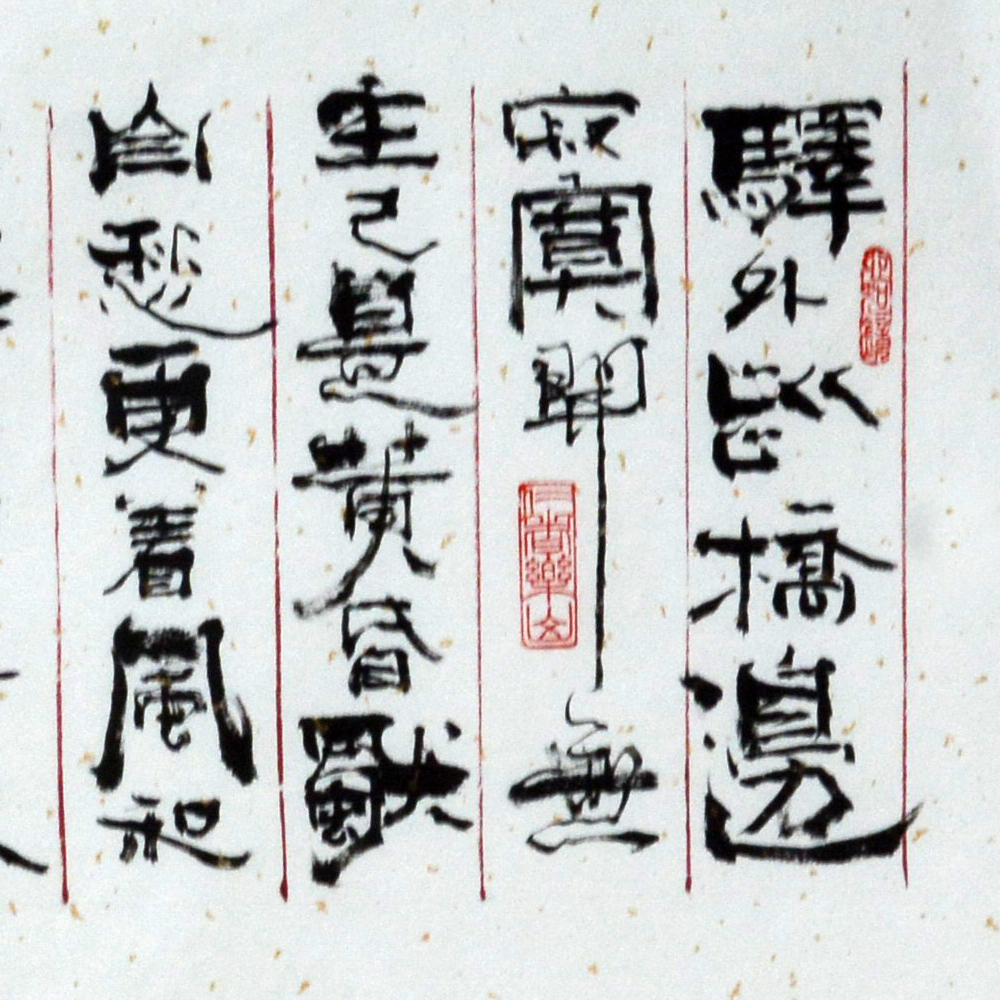 驛外斷橋邊
寂寞開無
主已是黃昏獨
自愁更着風和
仁者樂山